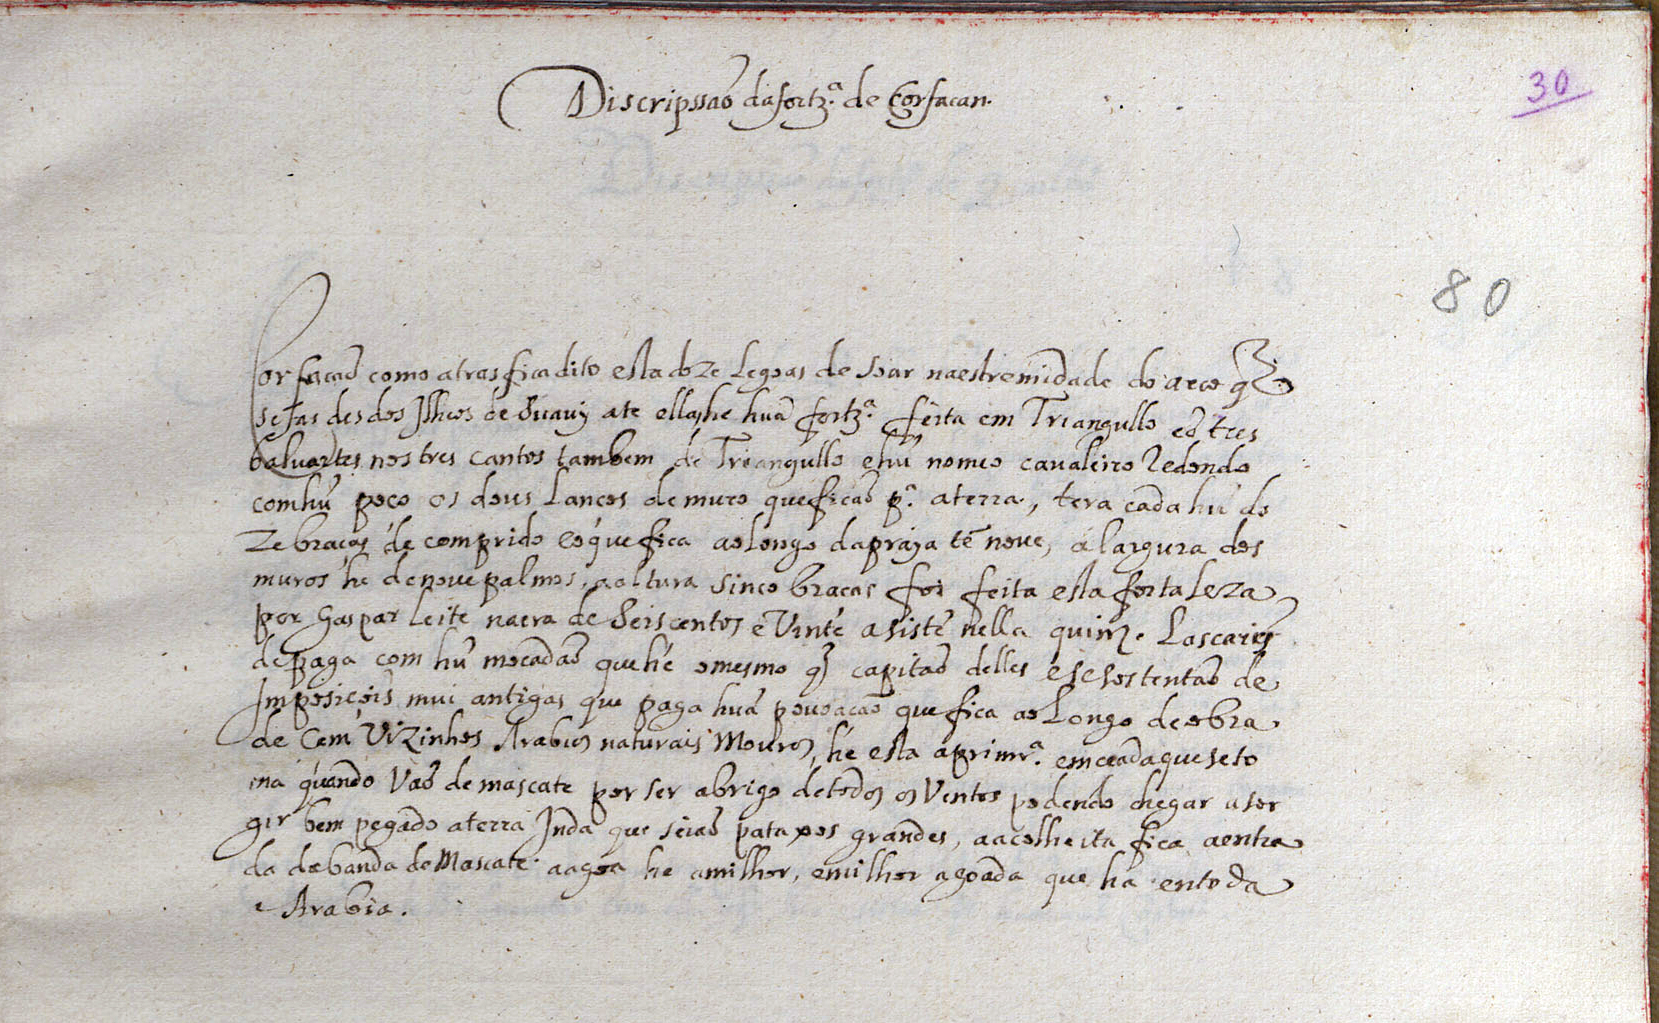 Discripssaõ dafortz.ª de Corfacan.
30
80
Corfacaõ como atras fica dito esta doze Legoas de Soar naestremidade do arco q̃
se fas des dos Ilheos de Suavy ate ella, he huã fortz.ª feita em Triangullo cõ tres
baluartes nos tres cantos tambem de Triangullo e hũ no meo cavaleiro Redondo
com hũ poço os dous Lanços de muro que ficaõ p.ª aterra, tera cada hũ do
ze braças de comprido eo que fica ao longo dapraja tẽ nove, a largura dos
muros he de nove palmos, a altura sinco braças foi feita esta fortaleza
por Gaspar Leite na era de Seiscentos e Vinte asistẽ nella quinze Lascairs
depaga com hũ mocadaõ que hé omesmo q̃ capitaõ delles e se sostentaõ de
Imposicois mui antigas que paga huã povoacaõ que fica ao Longo de obra
de Cem Vizinhos Arabios naturais Mouros, hé esta aprimr.ª emceada que se to
ma quando Vaõ de mascate por ser abrigo de todos os Ventos podendo chegar a sor
gir bem pegado aterra Inda que seiaõ pataxos grandes, aacolheita fica aentra
da da banda de Mascate. aagoa he amilhor, emilhor agoada que ha entoda
a Arabia.